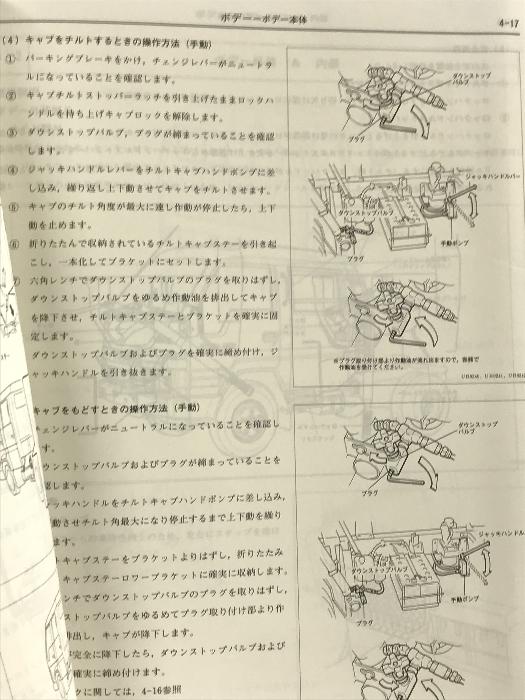 ボデーーボデー本体
4-17
(4) キャブをチルトするときの操作方法 (手動)
① パーキングブレーキをかけ，チェンジレバーがニュートラ
ルになっていることを確認します。
② キャブチルトストッパーラッチを引き上げたままロックハ
ンドルを持ち上げキャブロックを解除します。
③ ダウンストップバルブ，プラグが締まっていることを確認
します。
④ ジャッキハンドルレバーをチルトキャブハンドポンプに差
し込み，繰り返し上下動させてキャブをチルトさせます。
⑤ キャブのチルト角度が最大に達し作動が停止したら，上下
動を止めます。
⑥ 折りたたんで収納されているチルトキャブステーを引き起
こし，一本化してブラケットにセットします。
六角レンチでダウンストップバルブのプラグを取りはずし，
ダウンストップバルブをゆるめ作動油を排出してキャブ
を降下させ，チルトキャブステーとブラケットを確実に固
定します。
ダウンストップバルブおよびプラグを確実に締め付け，ジ
ャッキハンドルを引き抜きます。
ダウンストップ
バルブ
プラグ
ジャッキハンドルバー
ダウンストップバルブ
手動ポンプ
プラグ
※プラグ取り付け部より作動油が流れ出ますので，容器で
作動油を受けてください。
キャブをもどすときの操作方法 (手動)
ェンジレバーがニュートラルになっていることを確認し
す。
ウンストップバルブおよびプラグが締まっていることを
認します。
ッキハンドルをチルトキャブハンドポンプに差し込み，
動させチルト角最大になり停止するまで上下動を繰り
ます。
トキャブステーをブラケットよりはずし，折りたたみ
キャブステーロワーブラケットに確実に収納します。
ンチでダウンストップバルブのプラグを取りはずし，
ストップバルブをゆるめてプラグ取り付け部より作
排出し，キャブが降下します。
完全に降下したら，ダウンストップバルブおよび
確実に締め付けます。
クに関しては，4-16参照
ダウンストップ
バルブ
プラグ
ジャッキハンドル
ダウンストップバルブ
手動ポンプ
プラグ